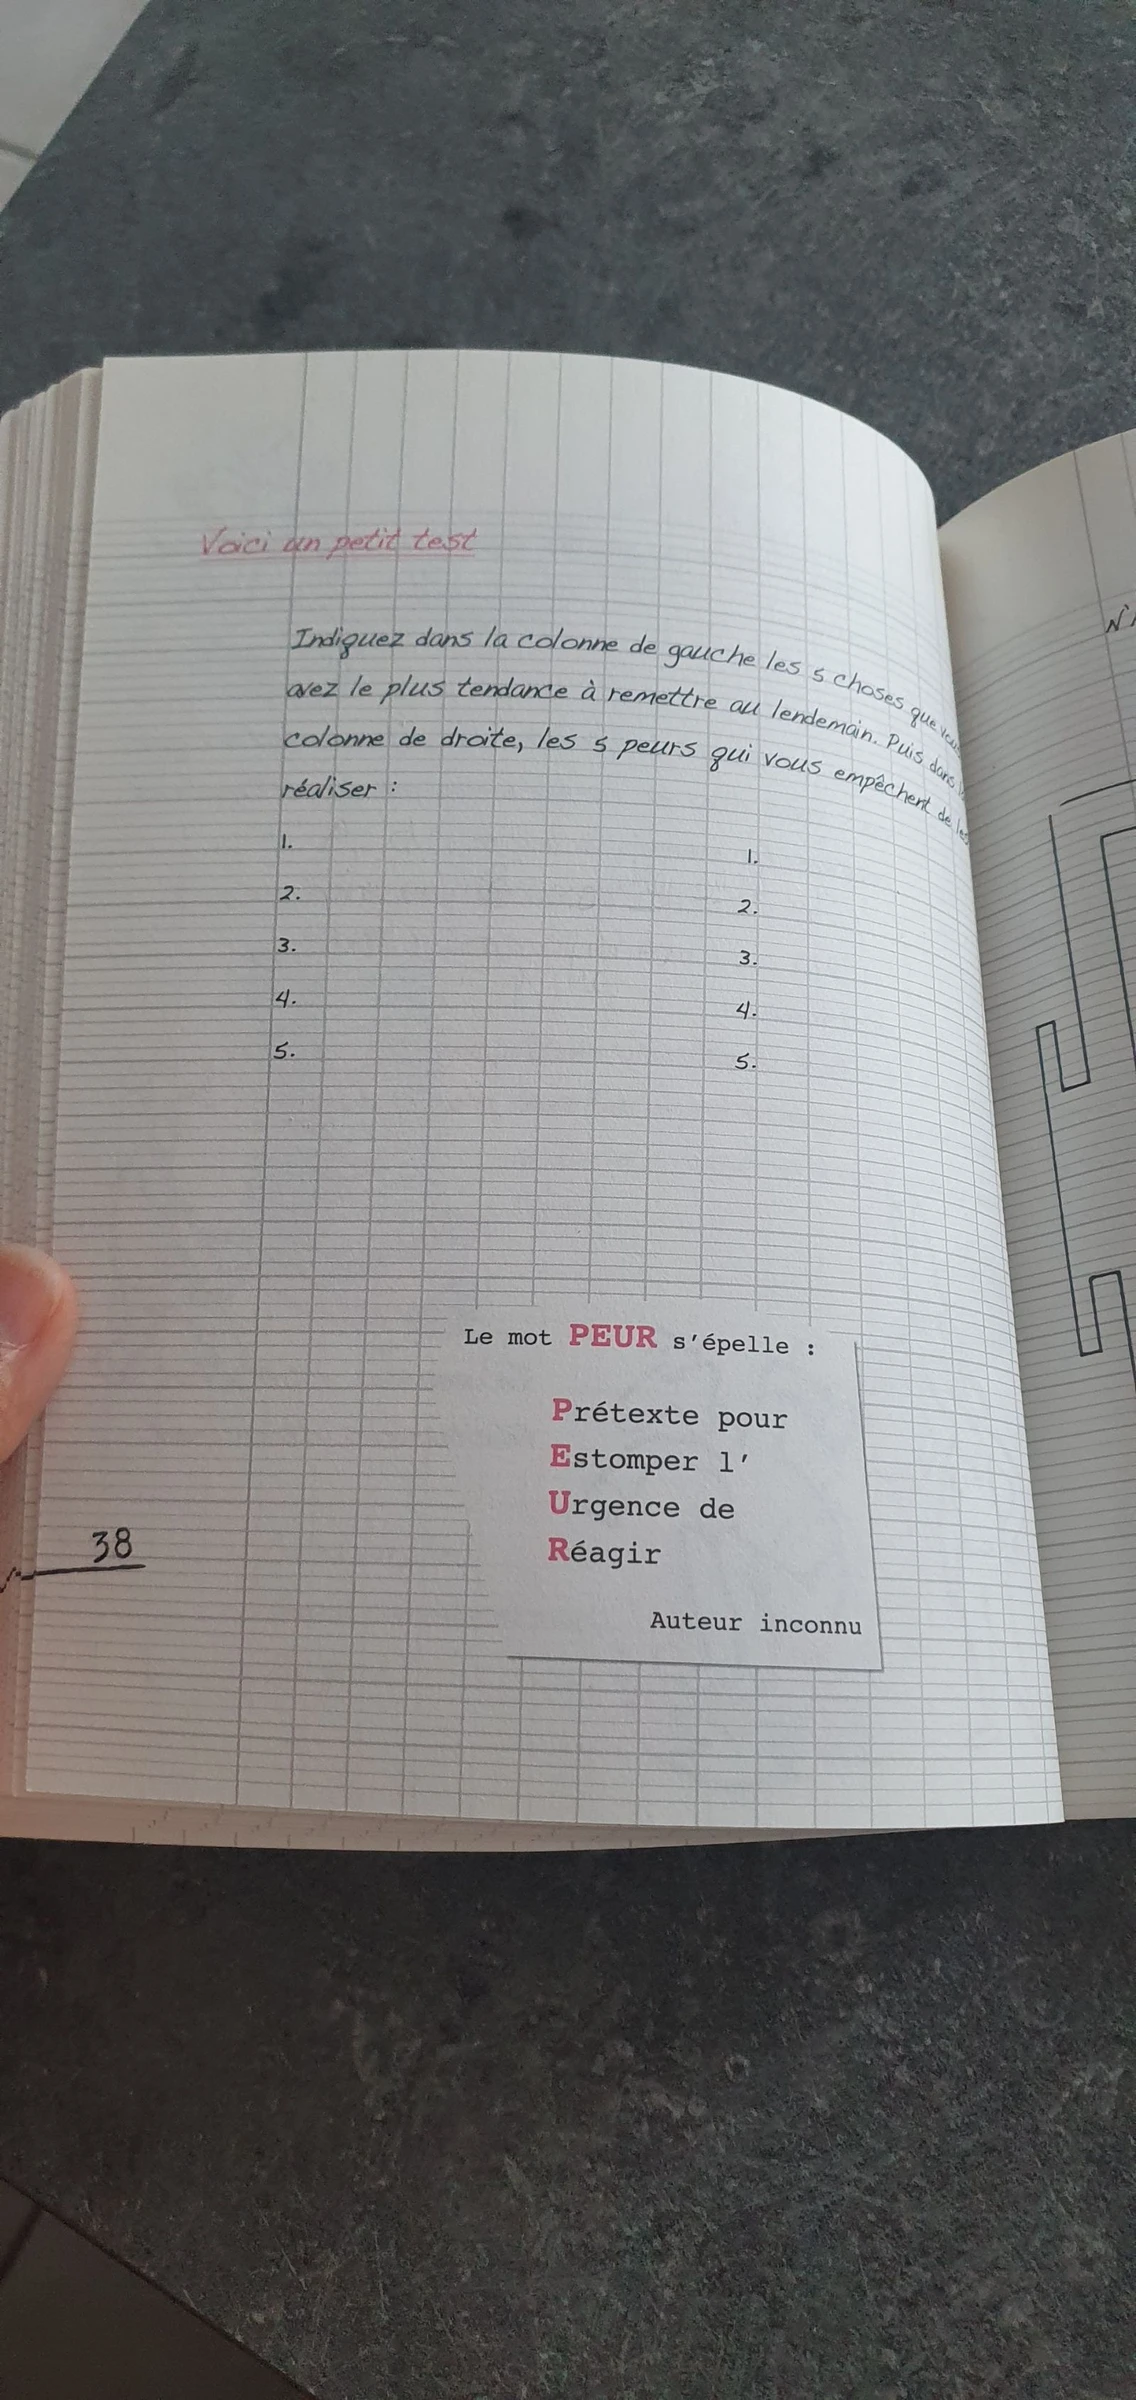 Voici un petit test
Indiquez dans la colonne de gauche les 5 choses que vous
avez le plus tendance à remettre au lendemain. Puis dans la
colonne de droite, les 5 peurs qui vous empêchent de les
réaliser :
1. 1.
2. 2.
3. 3.
4. 4.
5. 5.
Le mot PEUR s'épelle :
Prétexte pour
Estomper l'
Urgence de
Réagir
Auteur inconnu
38